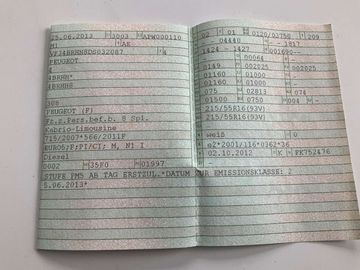 25.06.2013 3003 APW000110
M1 AE
VF34BRHR8DS032087 4
PEUGEOT
4
4BRHR*
4BRHH8
308
PEUGEOT (F)
Fz.z.Pers.bef.b. 8 Spl.
Kabrio-Limousine
715/2007*566/2011F
EURO5;F;PI/CI; M, N1 I
Diesel
0002 35F0 01997
STUFE PM5 AB TAG ERSTZUL.*DATUM ZUR EMISSIONSKLASSE: 2
5.06.2013*
02 01 0120/03750 209
04440 - 1817
1424 - 1427 001690--
00064 -
1149 002025 002025
01160 01000
01160 01000
075 02813 074
01500 0750 004 -
215/55R16(93V)
215/55R16(93V)
-
weiß 0
e2*2001/116*0362*36
02.10.2012 K FK752476
-